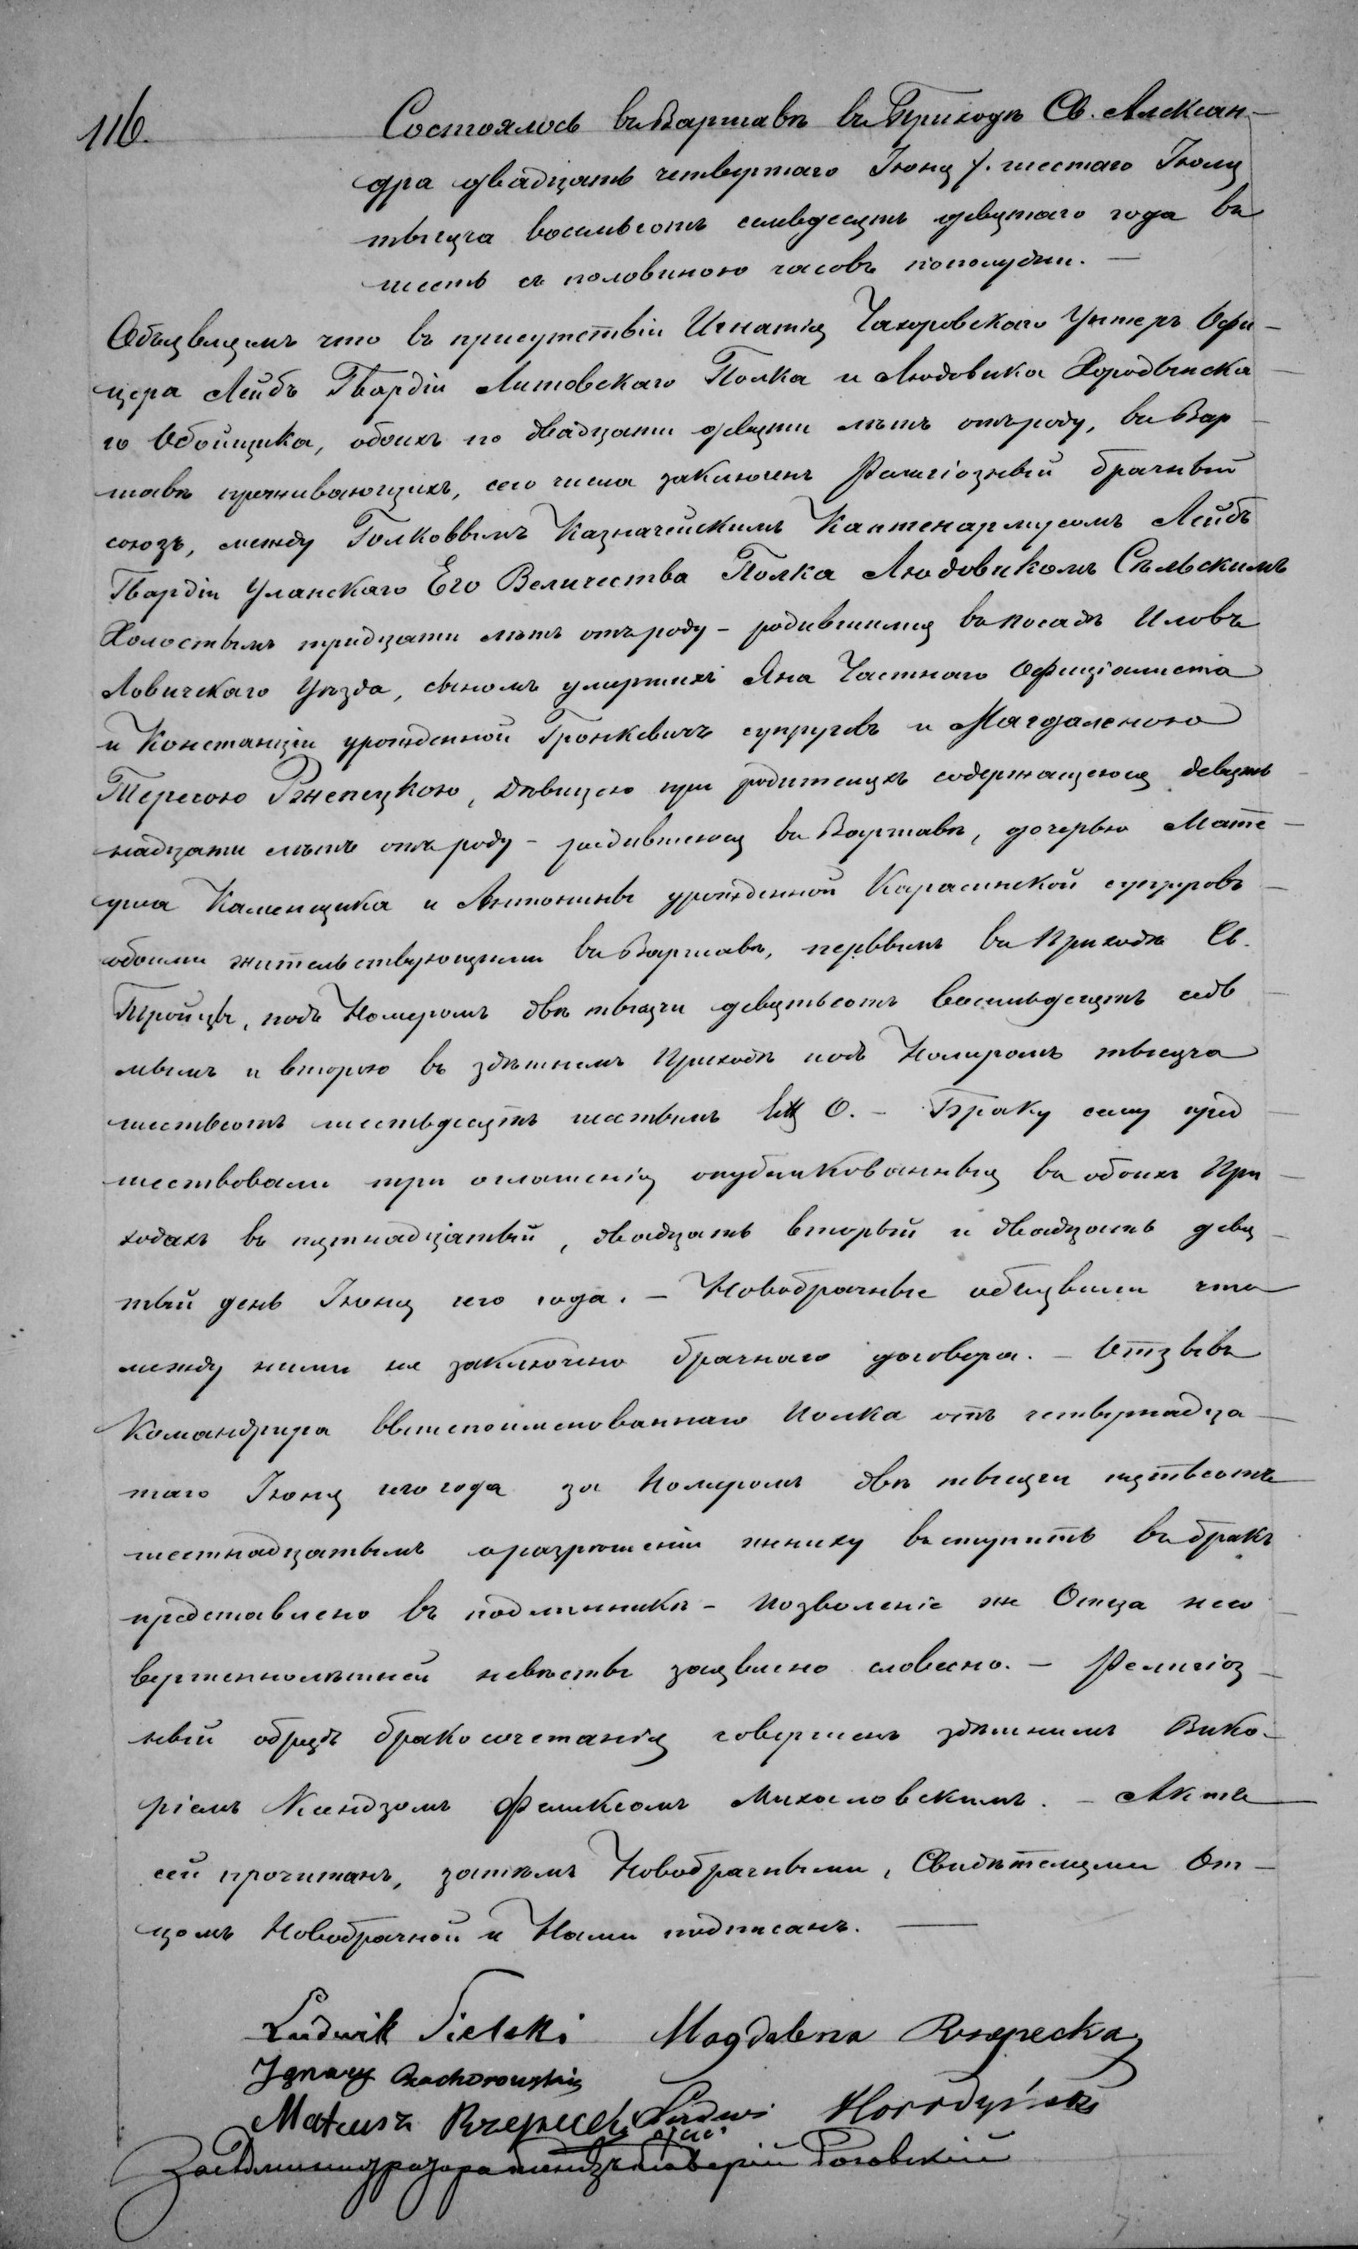 116.
Состоялось въ Варшавѣ въ Приходѣ Св. Алексан-
дра двадцать четвертаго Іюня /. шестаго Іюля
тысяча восемьсотъ семьдесятъ девятаго года въ
шесть съ половиною часовъ пополудни. —
Объявляемъ что въ присутствіи Игнатія Чахоровскаго Унтеръ Офи-
цера Лейбъ Гвардіи Литовскаго Полка и Людовика Хородынска
го Обойщика, обоихъ по двадцати девяти лѣтъ отъ роду, въ Вар
шавѣ проживающихъ, сего числа заключенъ Религіозный брачный
союзъ, между Полковымъ Казначейскимъ Каптенармусомъ Лейбъ
Гвардіи Уланскаго Его Величества Полка Людовикомъ Сѣльскимъ
Холостымъ тридцати лѣтъ отъ роду - родившимся въ посадѣ Иловъ
Ловичскаго Уѣзда, сыномъ умершихъ Яна Частнаго Официалиста
и Констанціи урожденной Гронкевичъ супруговъ и Магдаленою
Тересою Ржепецкою, дѣвицею при родителяхъ содержащеюся девят
надцати лѣтъ отъ роду - родившеюся въ Варшавѣ, дочерью Мате-
уша Каменщика и Антонины урожденной Карасинской супруговъ
обоими жительствующими въ Варшавѣ, первымъ въ Приходѣ Св.
Тройцы, подъ Номеромъ двѣ тысячи девятьсотъ восемьдесятъ седь
мымъ и второю въ здѣшнемъ Приходѣ подъ Номеромъ тысяча
шестьсотъ шестьдесятъ шестымъ О. - Браку сему пред
шествовали три оглашенія опубликованныя въ обоихъ При-
ходахъ въ пятнадцатый, двадцать вторый и двадцать девя-
тый день Іюня сего года. - Новобрачные объявили что
между ними не заключено брачнаго договора. - Отзывъ
Командира вышепоименованнаго Полка отъ четырнадца-
таго Іюня сего года за Номеромъ двѣ тысячи пятьсотъ
шестнадцатымъ о разрѣшеніи жениху вступить въ бракъ
представлено въ подлинникѣ - позволеніе же Отца несо
вершеннолѣтней невѣсты заявлено словесно. - Религіоз-
ный обрядъ бракосочетанія совершенъ здѣшнимъ Вика-
ріемъ Ксендзомъ Феликсомъ Михаловскимъ. - Актъ
сей прочитанъ, затѣмъ Новобрачными, Свидѣтелями От-
цомъ Новобрачной и Нами подписанъ. —
Ludwik Sielski Magdalena Rzepecka
Ignacy Czachorowski
Mateusz Rzepecki ojciec Ludwi Horodyński
За Администратора Ксендзъ Ксаверій Роговскій